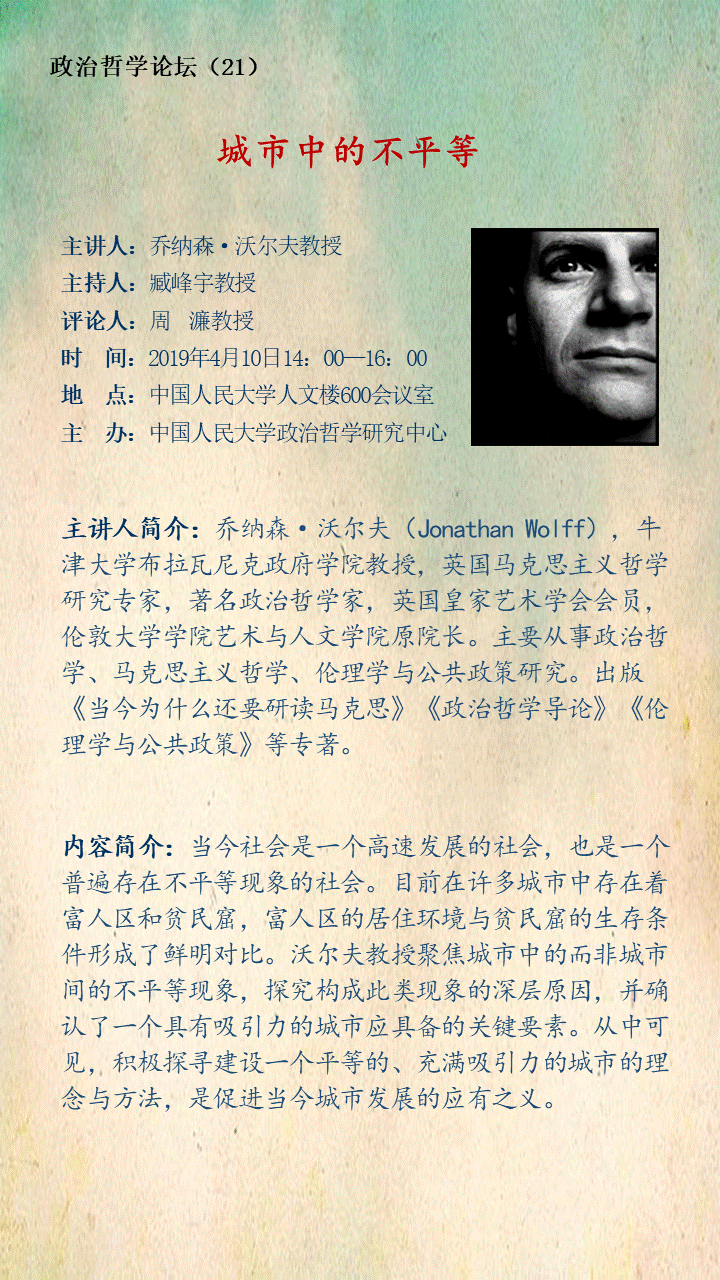 政治哲学论坛（21）
城市中的不平等
主讲人：乔纳森·沃尔夫教授
主持人：臧峰宇教授
评论人：周　濂教授
时　间：2019年4月10日14：00—16：00
地　点：中国人民大学人文楼600会议室
主　办：中国人民大学政治哲学研究中心
主讲人简介：乔纳森·沃尔夫（Jonathan Wolff），牛
津大学布拉瓦尼克政府学院教授，英国马克思主义哲学
研究专家，著名政治哲学家，英国皇家艺术学会会员，
伦敦大学学院艺术与人文学院原院长。主要从事政治哲
学、马克思主义哲学、伦理学与公共政策研究。出版
《当今为什么还要研读马克思》《政治哲学导论》《伦
理学与公共政策》等专著。
内容简介：当今社会是一个高速发展的社会，也是一个
普遍存在不平等现象的社会。目前在许多城市中存在着
富人区和贫民窟，富人区的居住环境与贫民窟的生存条
件形成了鲜明对比。沃尔夫教授聚焦城市中的而非城市
间的不平等现象，探究构成此类现象的深层原因，并确
认了一个具有吸引力的城市应具备的关键要素。从中可
见，积极探寻建设一个平等的、充满吸引力的城市的理
念与方法，是促进当今城市发展的应有之义。